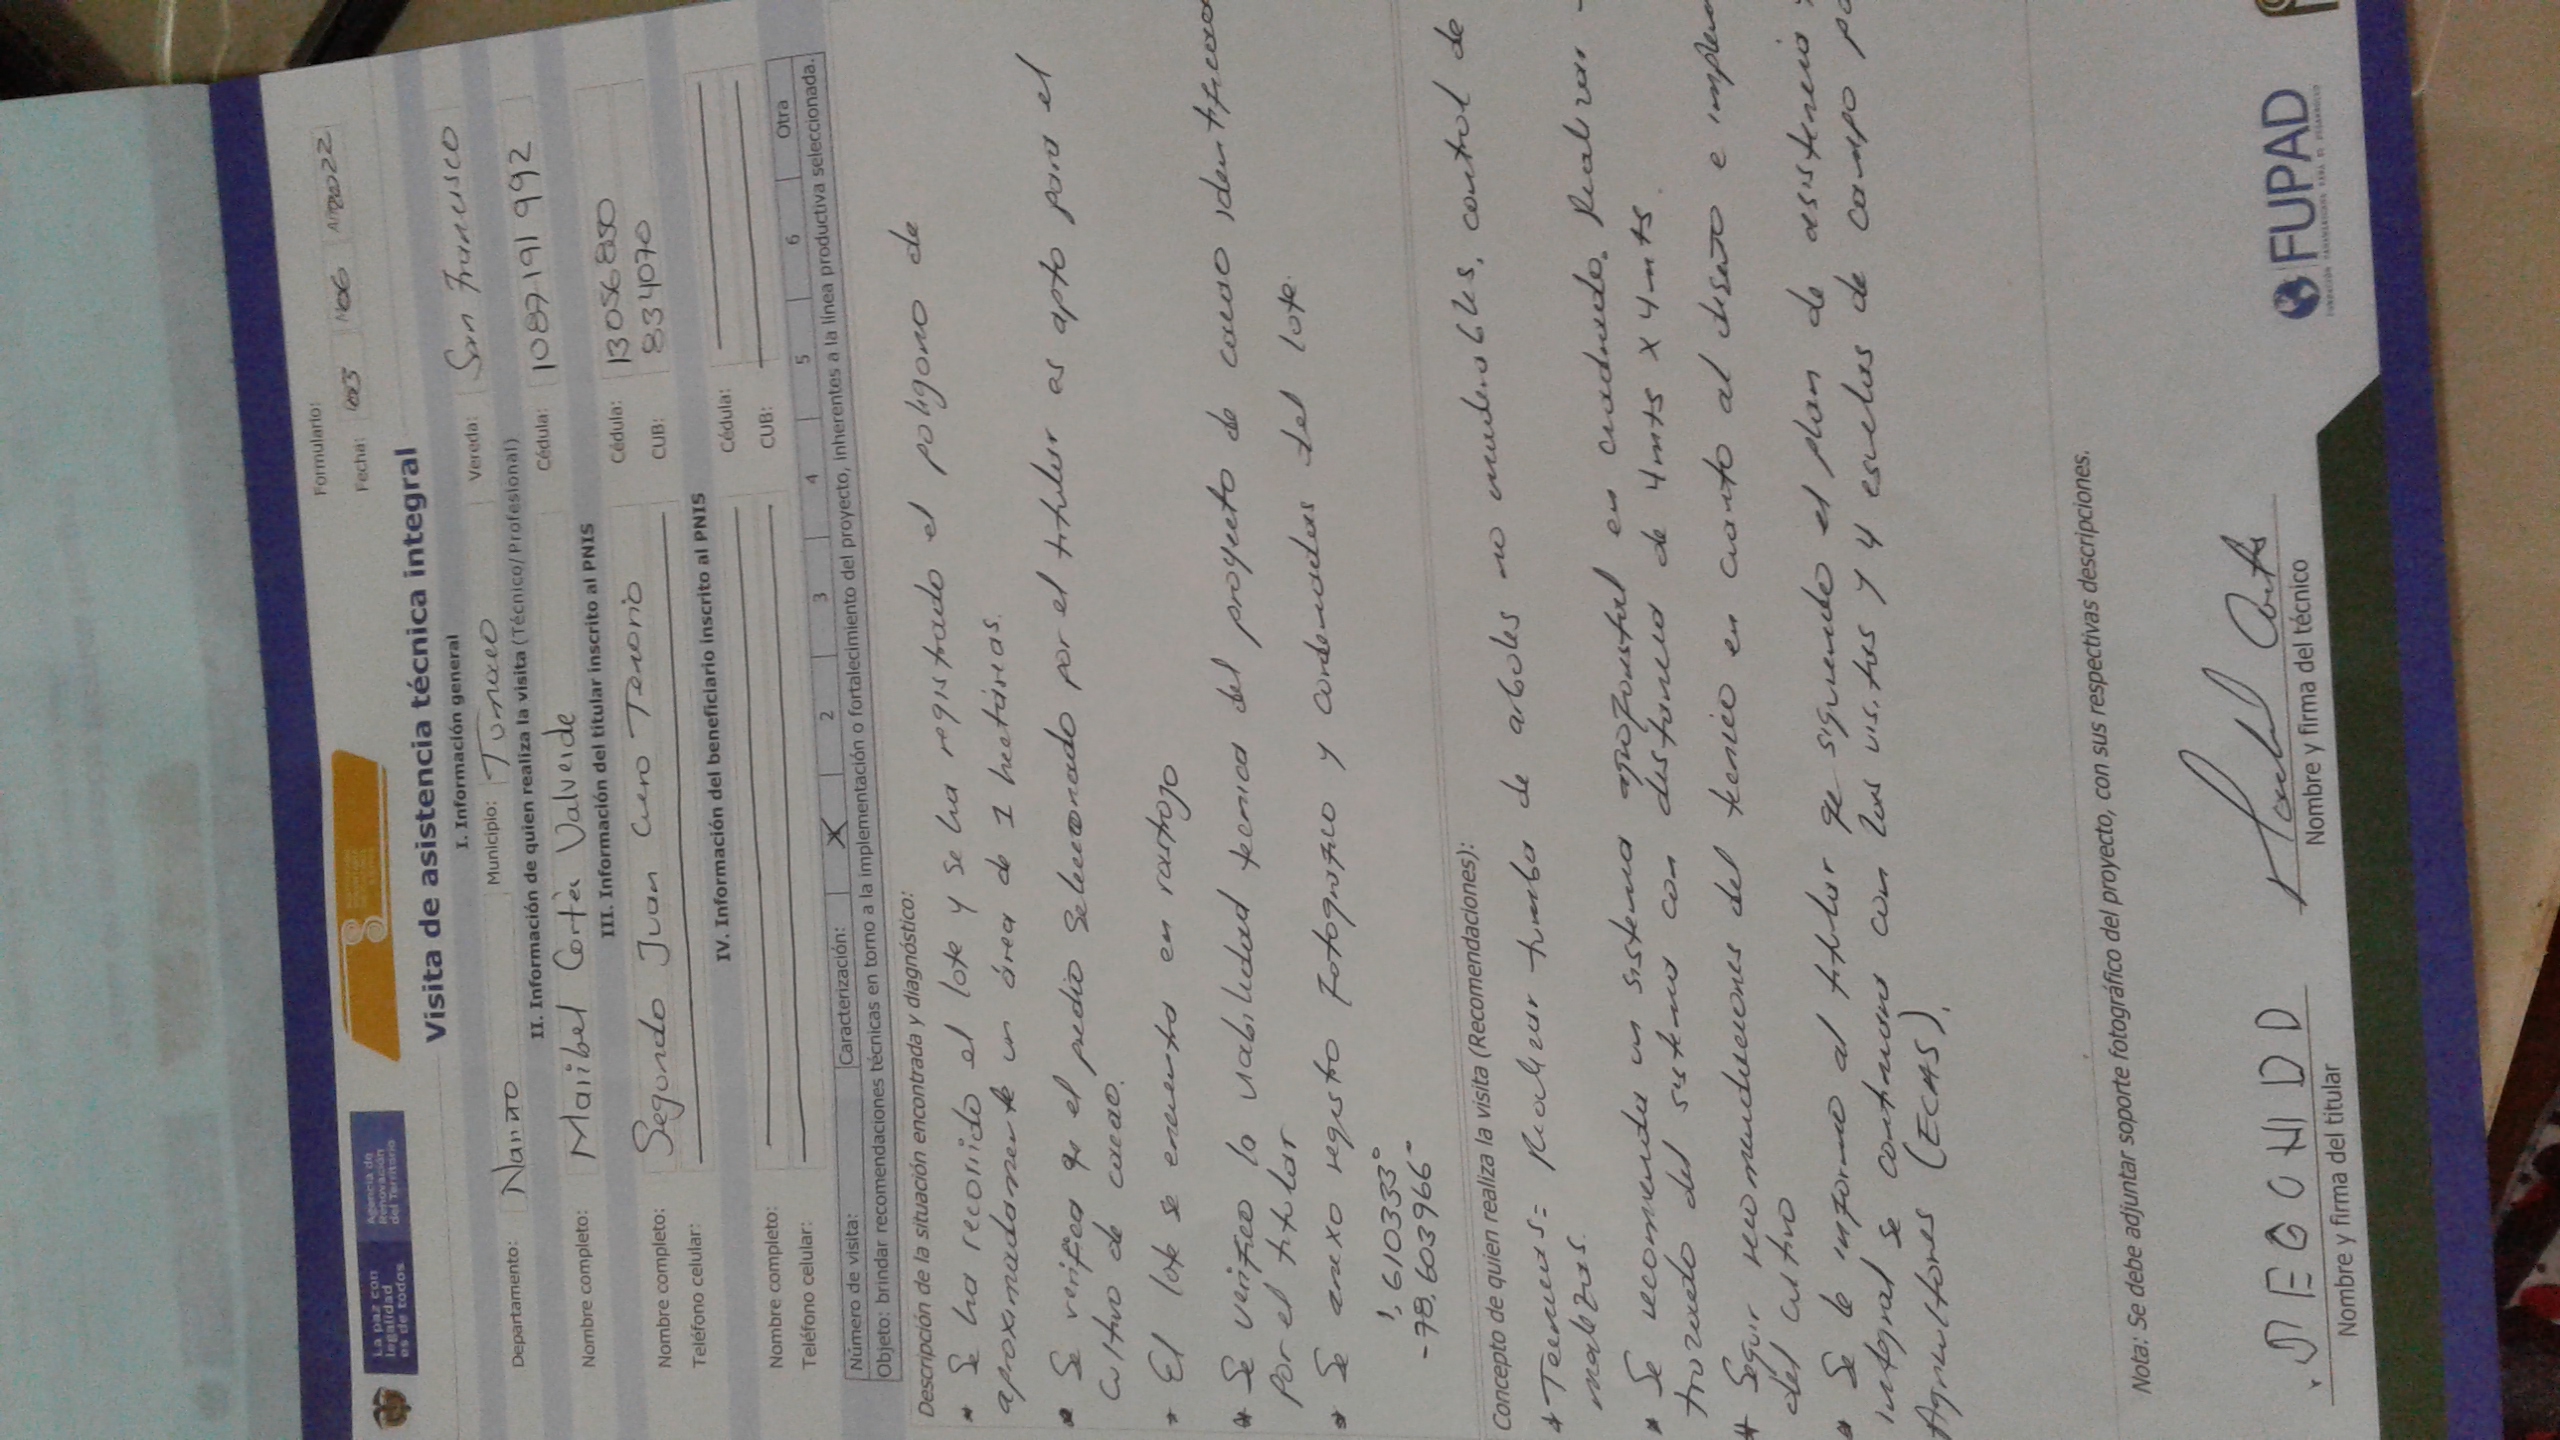 La paz con
legalidad
es de todos
Agencia de
Renovación
del Territorio
Formulario:
Fecha: 003 Nº06 AÑO2022
Visita de asistencia técnica integral
I. Información general
Departamento: Nariño Municipio: Tumaco Vereda: San Francisco
II. Información de quien realiza la visita (Técnico/Profesional)
Nombre completo: Maribel Cortès Valverde Cédula: 1087191992
III. Información del titular inscrito al PNIS
Nombre completo: Segundo Juan Cuero Tenorio Cédula: 13056850
Teléfono celular: CUB: 834070
IV. Información del beneficiario inscrito al PNIS
Nombre completo: Cédula:
Teléfono celular: CUB:
Número de visita: Caracterización: X 2 3 4 5 6 Otra
Objeto: brindar recomendaciones técnicas en torno a la implementación o fortalecimiento del proyecto, inherentes a la línea productiva seleccionada.
Descripción de la situación encontrada y diagnóstico:
* Se ha recorrido el lote y se ha registrado el poligono de
aproximadamente un área de 1 hectáreas.
* Se verifica q el predio Seleccionado por el titular es apto para el
cultivo de cacao.
* El lote se encuentra en rastrojo
* Se verifico la viabilidad tecnica del proyecto de cacao identificado
por el titular
* Se anexo registro fotografico y cordenadas del lote.
1,610333°
-78,603966°
Concepto de quien realiza la visita (Recomendaciones):
* Tecnicas: Realizar tumba de arboles no maderables, control de
malezas.
* Se recomienda un sistema agroforestal en cuadrado. Realizar
trazado del sistema con distancia de 4mts x 4mts.
* Seguir recomendaciones del tecnico en cuanto al diseño e
del cultivo
* Se le informo al titular q siguiendo el plan de asistencia
integral se continuara con las visitas y 4 escuelas de campo
Agricultores (ECAS).
Nota: Se debe adjuntar soporte fotográfico del proyecto, con sus respectivas descripciones.
SEGUNDO
Nombre y firma del titular
Nombre y firma del técnico
FUPAD